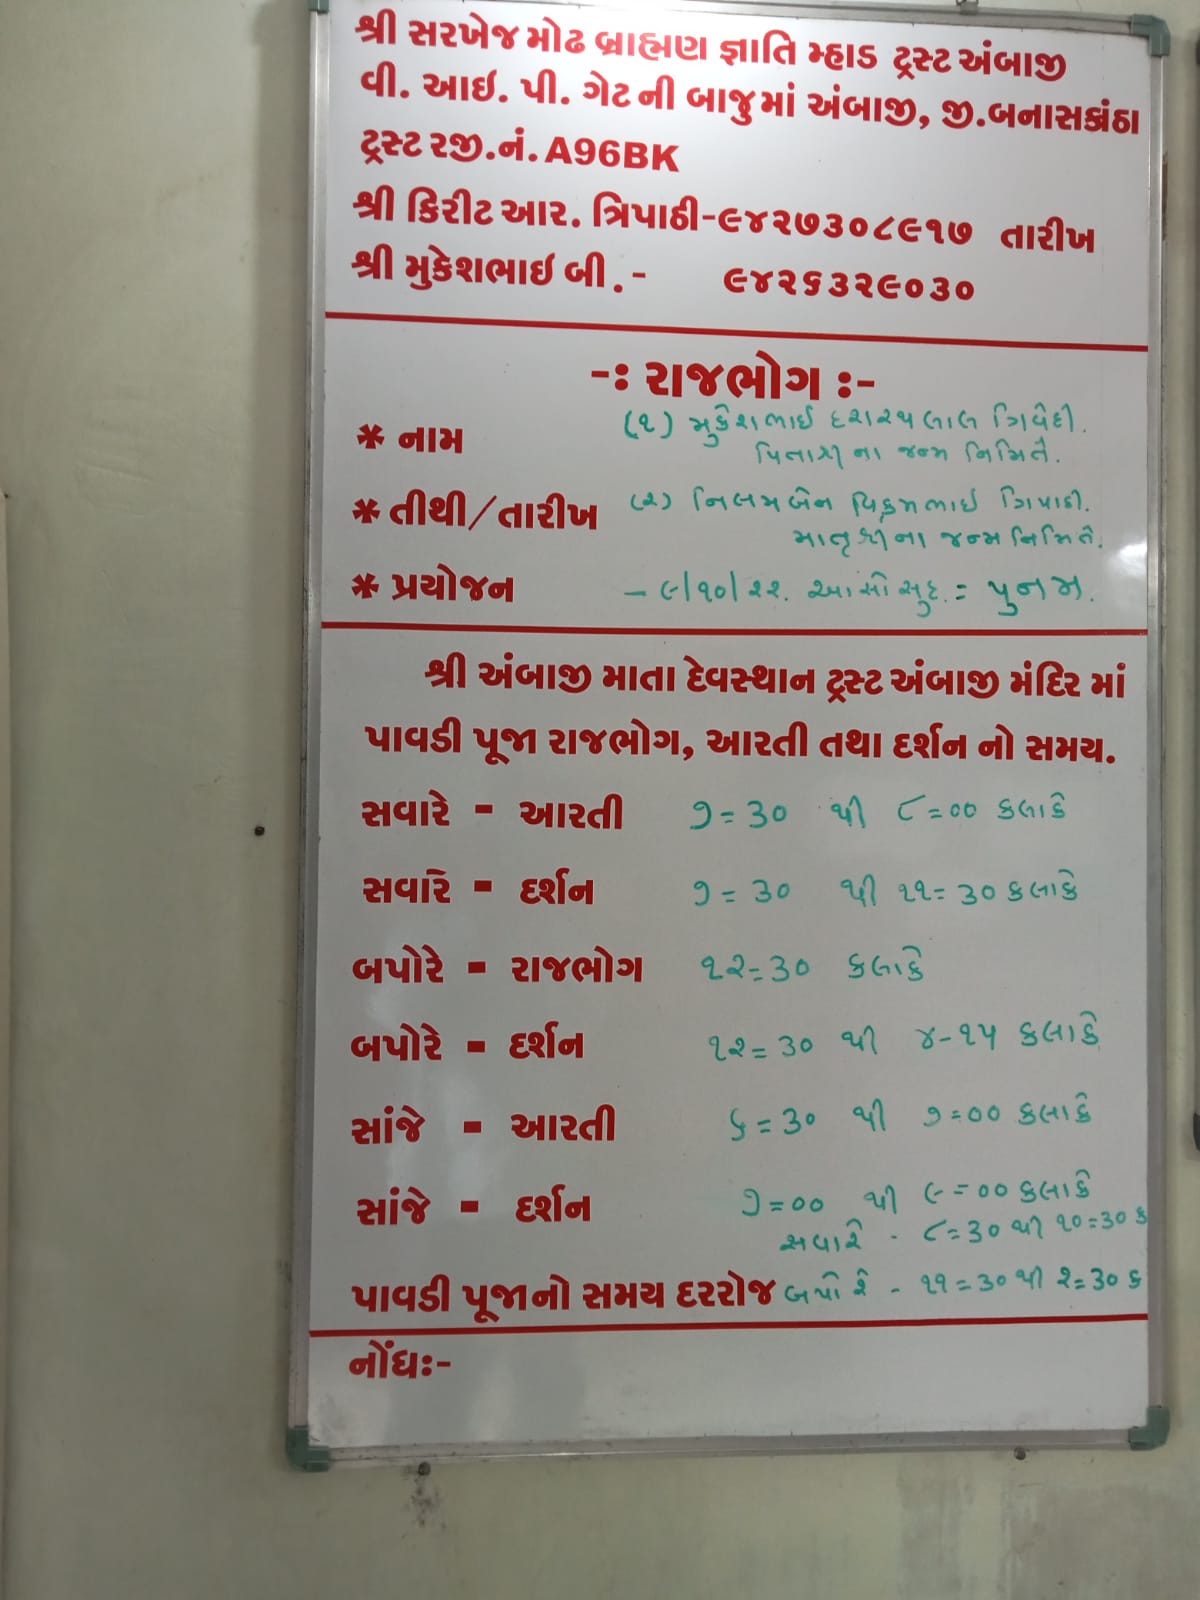 શ્રી સરખેજ મોઢ બ્રાહ્મણ જ્ઞાતિ મ્હાડ ટ્રસ્ટ અંબાજી
વી. આઇ. પી. ગેટ ની બાજુ માં અંબાજી, જી.બનાસકાંઠા
ટ્રસ્ટ રજી.નં. A96BK
શ્રી કિરીટ આર. ત્રિપાઠી-૯૪૨૭૩૦૮૯૧૭ તારીખ
શ્રી મુકેશભાઇ બી.- ૯૪૨૬૩૨૯૦૩૦
-: રાજભોગ :-
* નામ (૧) મુકેશભાઈ દશરથલાલ ત્રિવેદી.
પિતાશ્રી ના જન્મ નિમિતે.
* તીથી/તારીખ (૨) નિલમબેન વિક્રમભાઈ ત્રિપાઠી.
માતૃશ્રીના જન્મ નિમિતે.
* પ્રયોજન - ૯/૧૦/૨૨. આસો સુદ = પુનમ.
શ્રી અંબાજી માતા દેવસ્થાન ટ્રસ્ટ અંબાજી મંદિર માં
પાવડી પૂજા રાજભોગ, આરતી તથા દર્શન નો સમય.
સવારે - આરતી ૭=૩૦ થી ૮=૦૦ કલાકે
સવારે - દર્શન ૭=૩૦ થી ૧૧=૩૦ કલાકે
બપોરે - રાજભોગ ૧૨=૩૦ કલાકે
બપોરે - દર્શન ૧૨=૩૦ થી ૪-૧૫ કલાકે
સાંજે - આરતી ૬=૩૦ થી ૭=૦૦ કલાકે
સાંજે - દર્શન ૭=૦૦ થી ૯=૦૦ કલાકે
સવારે - ૮=૩૦ થી ૧૦=૩૦ ક
પાવડી પૂજાનો સમય દરરોજ બપોરે - ૧૧=૩૦ થી ૨=૩૦ ક
નોંધઃ-